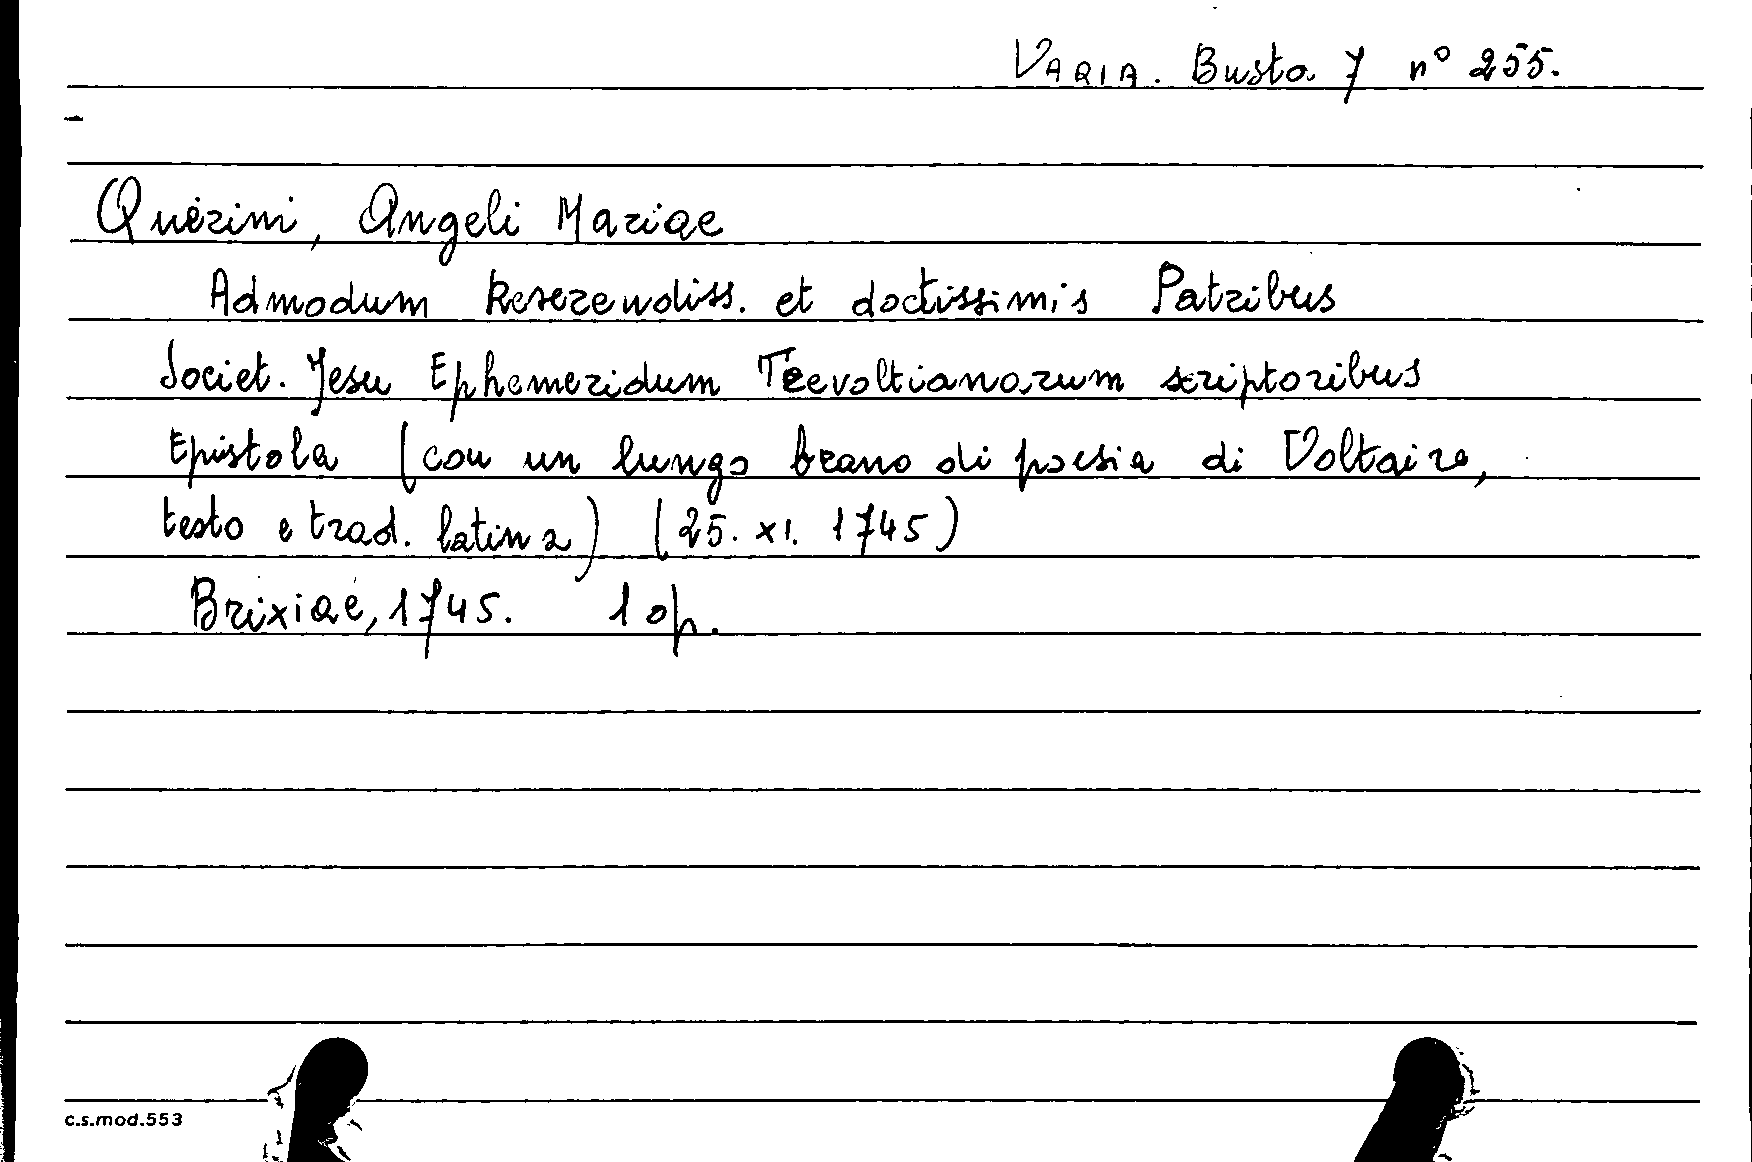 VARIA. Busta 7 n° 255.
Querini, Angeli Mariae
Admodum Reverendiss. et doctissimis Patribus
Societ. Jesu Ephemeridum Trevoltianorum scriptoribus
Epistola (con un lungo brano di poesia di Voltaire,
testo e trad. latina) (25. XI. 1745)
Brixiae, 1745. 1 op.
c.s.mod.553